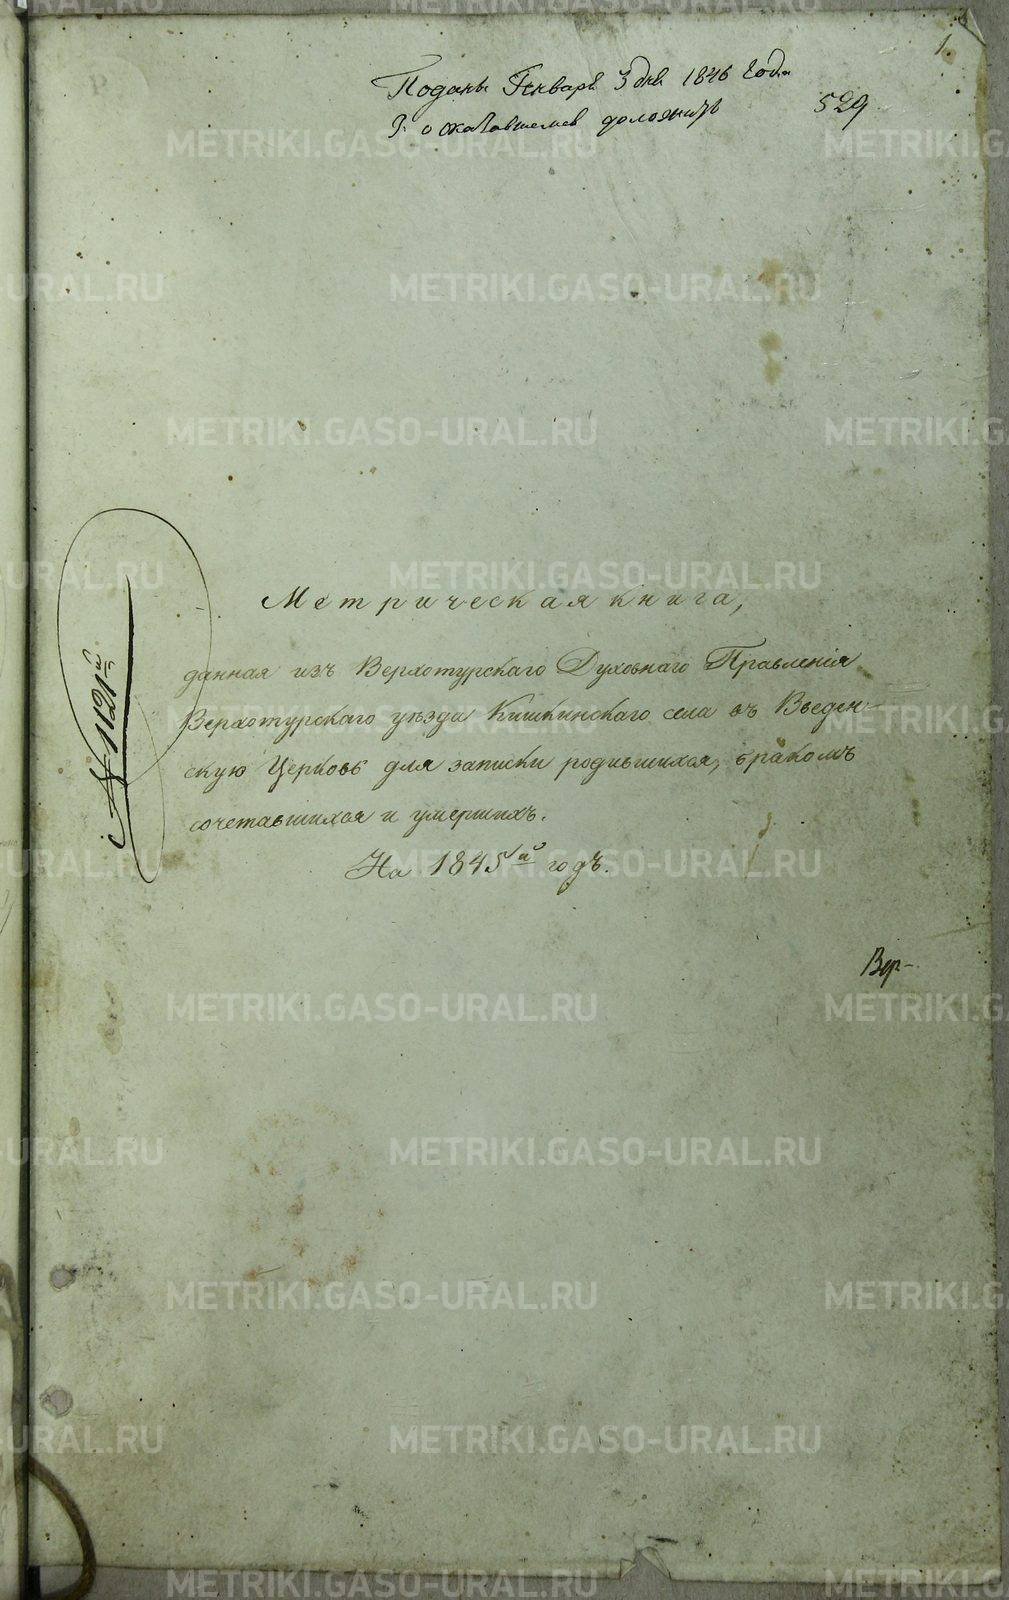 1.
Поданы Генваря 3 дня 1846 года
529
Р: о оказавшемся доложить
Метрическая книга,
данная изъ Верхотурскаго Духовнаго Правленія
Верхотурскаго уѣзда Кишкинскаго села въ Введен-
скую Церковь для записки родившихся, бракомъ
сочетавшихся и умершихъ.
На 1845й годъ.
№ 1121й
Вер-
METRIKI.GASO-URAL.RU